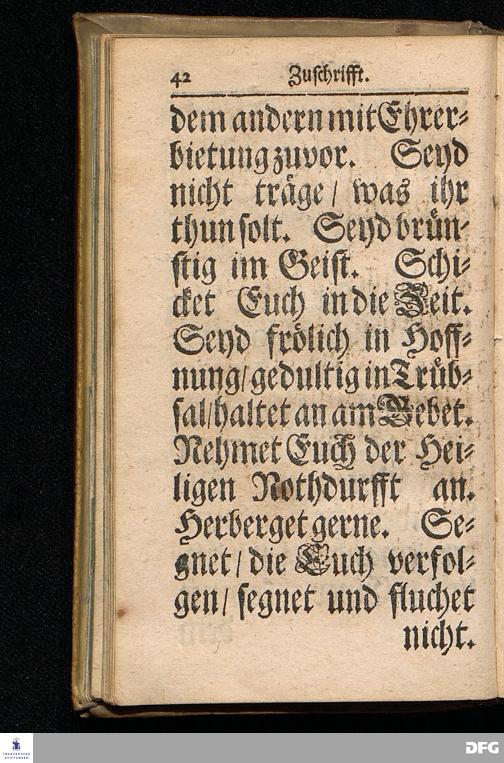 42 Zuschrifft.
dem andern mit Ehrer⸗
bietung zuvor. Seyd
nicht träge/ was ihr
thun solt. Seyd brün⸗
stig im Geist. Schi⸗
cket Euch in die Zeit.
Seyd frölich in Hoff⸗
nung/ gedultig in Trüb⸗
sal/ haltet an am Gebet.
Nehmet Euch der Hei⸗
ligen Nothdurfft an.
Herberget gerne. Se⸗
gnet/ die Euch verfol⸗
gen/ segnet und fluchet
nicht.
FRANCKESCHE STIFTUNGEN
DFG